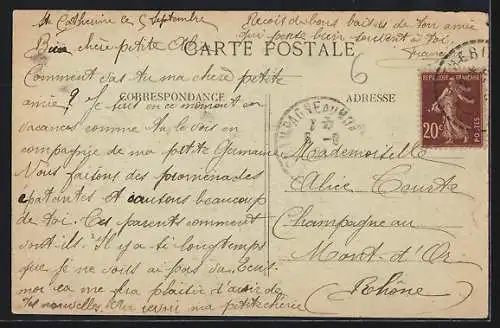 Ste Catherine le 5 Septembre
Bien chère petite
Comment vas-tu ma chère petite
amie ? Je suis en ce moment en
vacances comme tu le vois en
compagnie de ma petite Germaine
Nous faisons des promenades
épatantes et causons beaucoup
de toi. Tes parents comment
vont-ils. Il y a si longtemps
que je ne vous ai pas vu.
moi ça me fera plaisir d'avoir de
tes nouvelles. Au revoir ma petite chérie
Reçois des bons baisers de ton amie
qui pense bien souvent à toi
CARTE POSTALE
CORRESPONDANCE
ADRESSE
6
REPUBLIQUE FRANÇAISE
20c
POSTES
Mademoiselle
Alice Courte
Champagne au
Mont-d'Or
(Rhône)